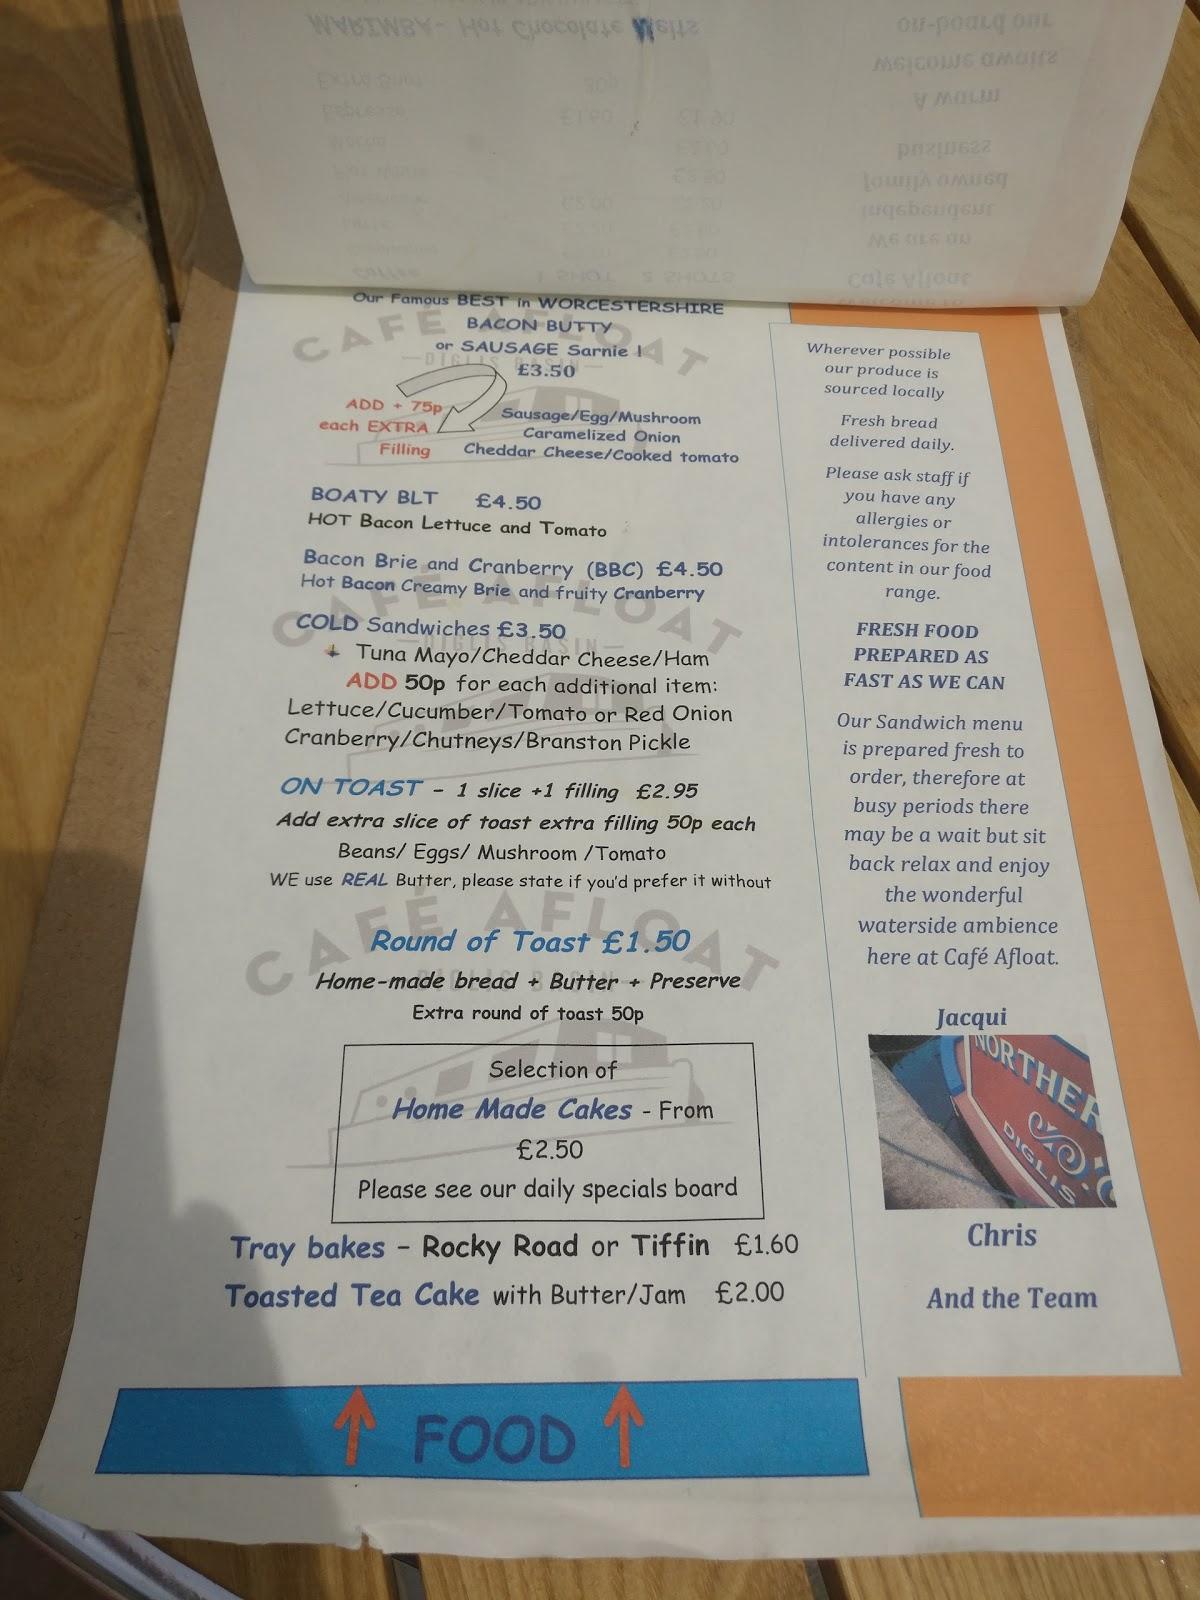 Our Famous BEST in WORCESTERSHIRE
BACON BUTTY
or SAUSAGE Sarnie !
£3.50
ADD + 75p
each EXTRA
Filling
Sausage/Egg/Mushroom
Caramelized Onion
Cheddar Cheese/Cooked tomato
BOATY BLT £4.50
HOT Bacon Lettuce and Tomato
Bacon Brie and Cranberry (BBC) £4.50
Hot Bacon Creamy Brie and fruity Cranberry
COLD Sandwiches £3.50
Tuna Mayo/Cheddar Cheese/Ham
ADD 50p for each additional item:
Lettuce/Cucumber/Tomato or Red Onion
Cranberry/Chutneys/Branston Pickle
ON TOAST - 1 slice +1 filling £2.95
Add extra slice of toast extra filling 50p each
Beans/ Eggs/ Mushroom /Tomato
WE use REAL Butter, please state if you'd prefer it without
Round of Toast £1.50
Home-made bread + Butter + Preserve
Extra round of toast 50p
Selection of
Home Made Cakes - From
£2.50
Please see our daily specials board
Tray bakes - Rocky Road or Tiffin £1.60
Toasted Tea Cake with Butter/Jam £2.00
FOOD
Wherever possible
our produce is
sourced locally
Fresh bread
delivered daily.
Please ask staff if
you have any
allergies or
intolerances for the
content in our food
range.
FRESH FOOD
PREPARED AS
FAST AS WE CAN
Our Sandwich menu
is prepared fresh to
order, therefore at
busy periods there
may be a wait but sit
back relax and enjoy
the wonderful
waterside ambience
here at Café Afloat.
Jacqui
NORTHER
DIGLIS
Chris
And the Team
CAFÉ AFLOAT
DIGLIS BASIN
CAFÉ AFLOAT
DIGLIS BASIN
CAFÉ AFLOAT
DIGLIS BASIN
MARIMBA- Hot Chocolate Melts
Extra Shot 30p
Espresso £1.60 £1.90
Coffee 1 SHOT 2 SHOTS
Café Afloat
We are an
independent
family owned
business
A warm
welcome awaits
on-board our